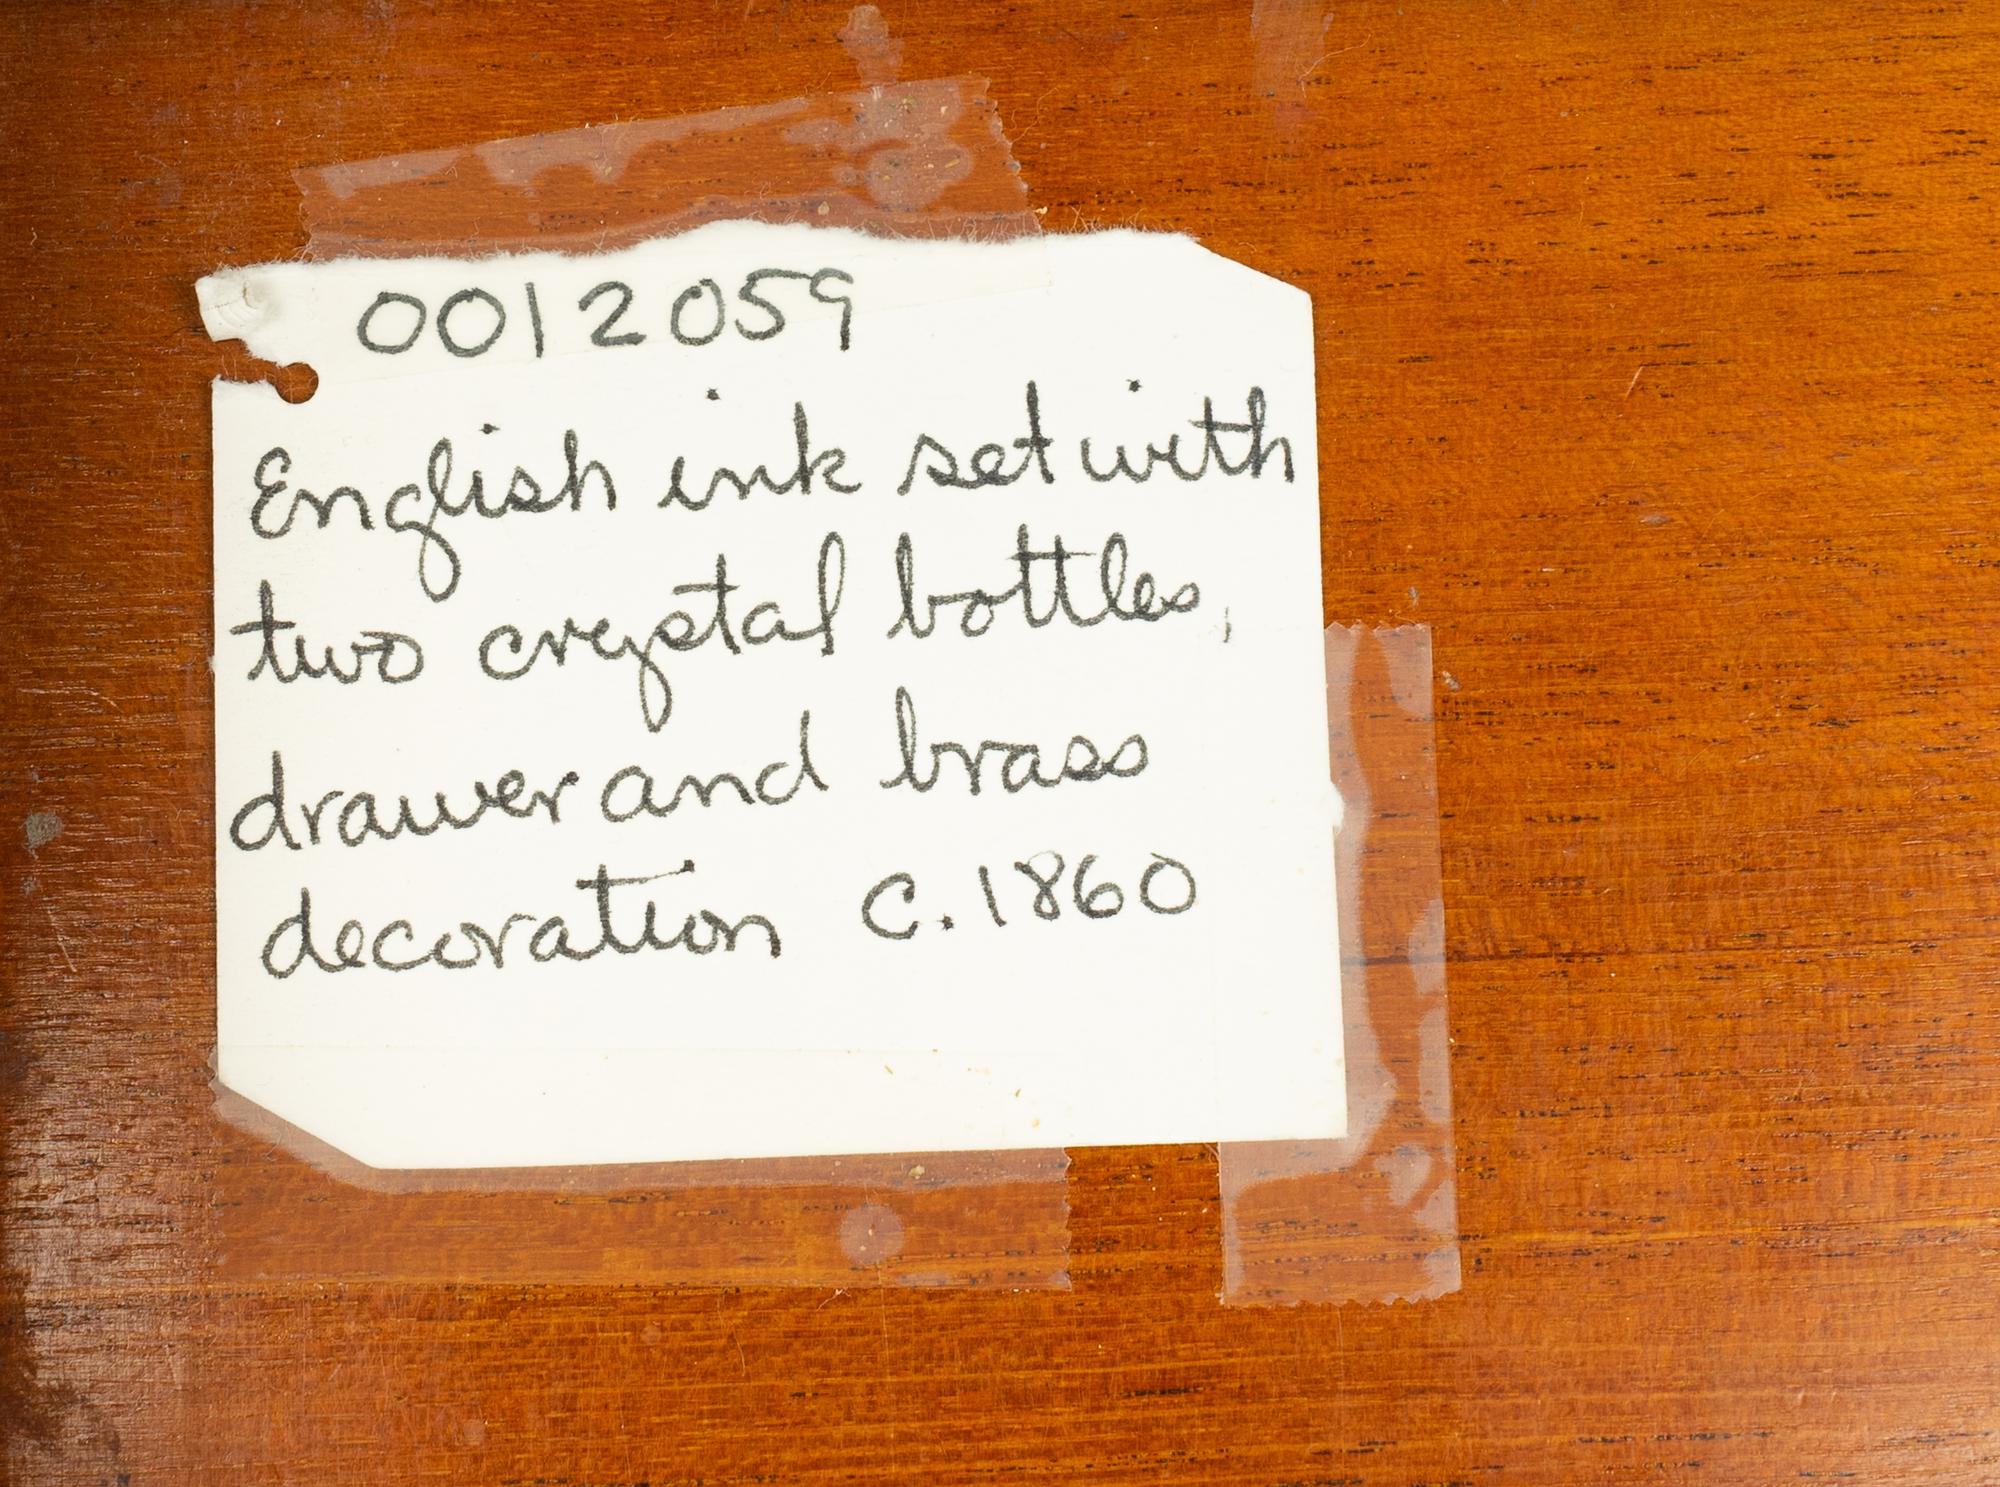 0012059
English ink set with
two crystal bottles,
drawer and brass
decoration c.1860